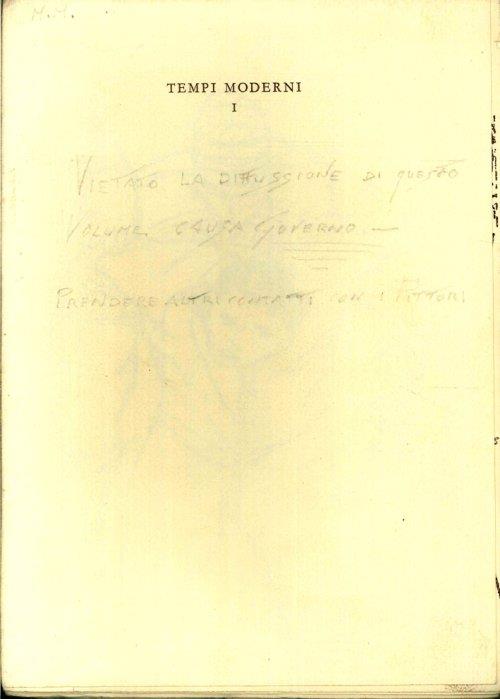 M.M.
TEMPI MODERNI
I
VIETATO LA DIFFUSSIONE DI QUESTO
VOLUME CAUSA GOVERNO —
PRENDERE ALTRI CONTATTI CON I PITTORI